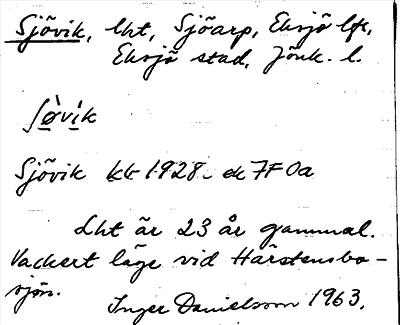 Sjövik, lht, Sjöarp, Eksjö lfs,
Eksjö stad, Jönk. l.
ʃø̀vìk
Sjövik kb 1928. ek 7F0a
Lht är 23 år gammal.
Vackert läge vid Härstensbo-
sjön.
Inger Danielsson 1963.